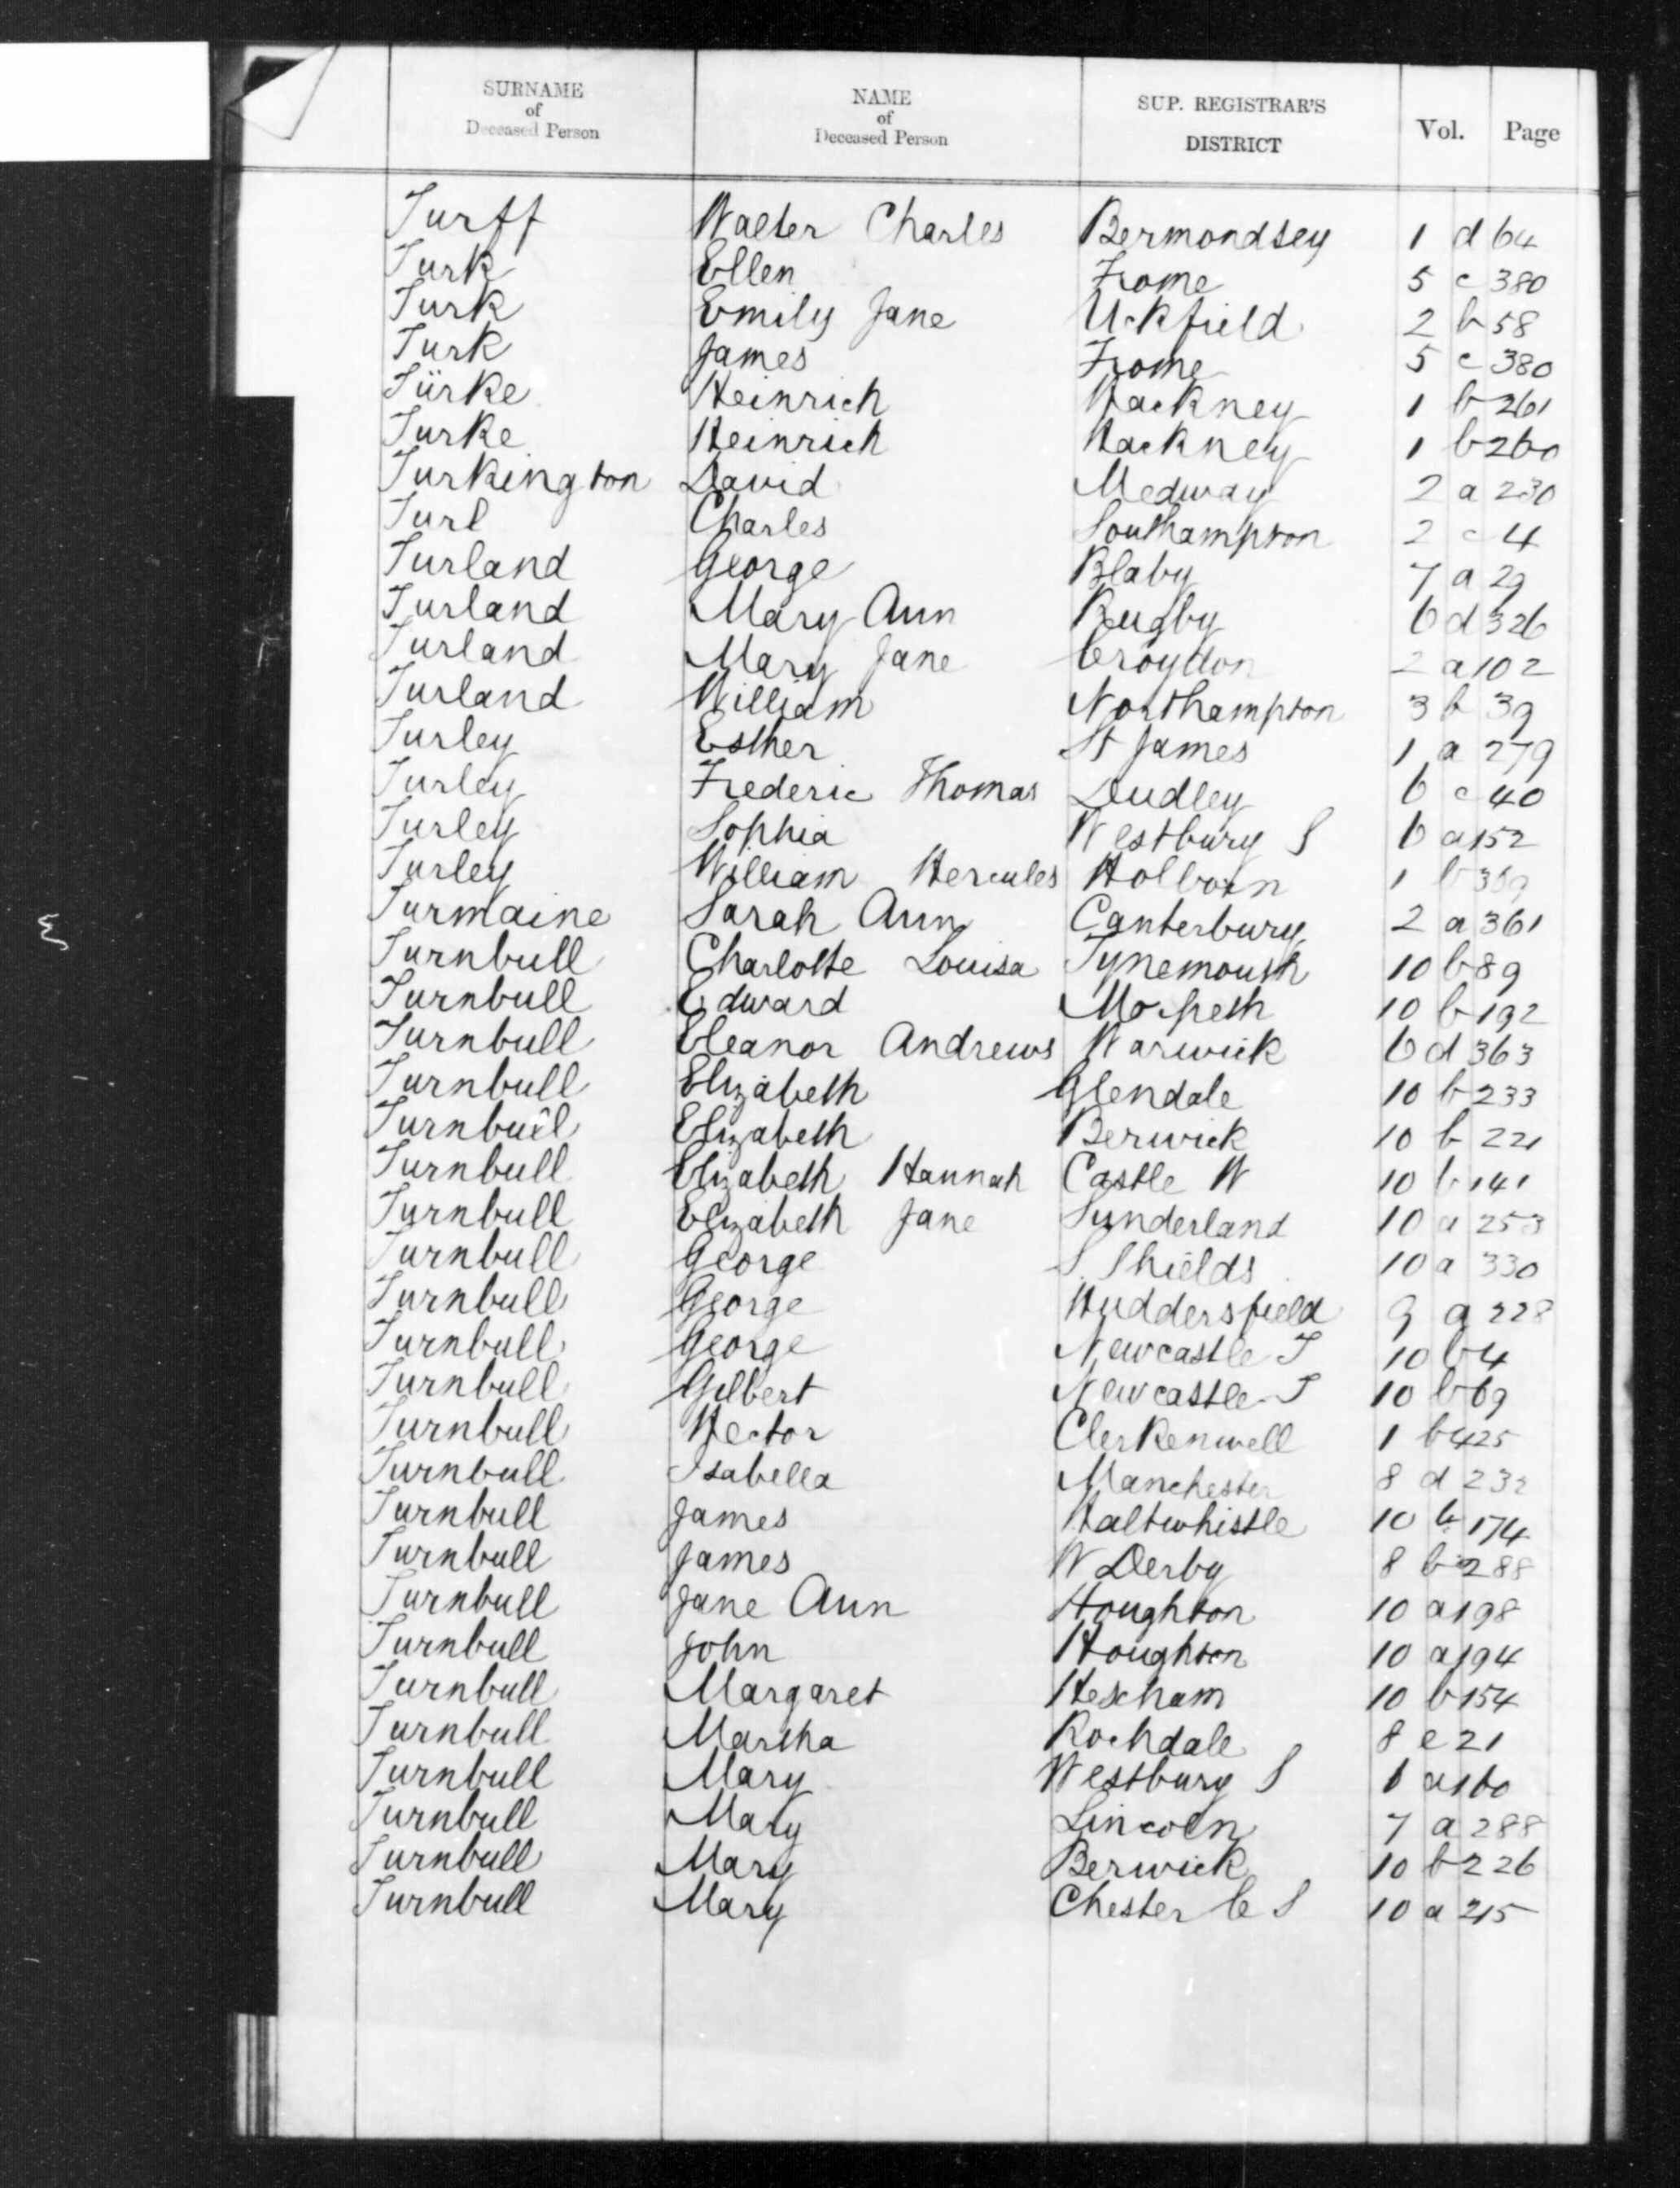 SURNAME of Deceased Person NAME of Deceased Person SUP. REGISTRAR'S DISTRICT Vol. Page
Turff Walter Charles Bermondsey 1 d 64
Turk Ellen Frome 5 c 380
Turk Emily Jane Uckfield 2 b 58
Turk James Frome 5 c 380
Türke Heinrich Hackney 1 b 261
Turke Heinrich Hackney 1 b 260
Turkington David Medway 2 a 230
Turl Charles Southampton 2 c 4
Turland George Blaby 7 a 29
Turland Mary Ann Rugby 6 d 326
Turland Mary Jane Croydon 2 a 102
Turland William Northampton 3 b 39
Turley Esther St James 1 a 279
Turley Frederic Thomas Dudley 6 c 40
Turley Sophia Westbury S 6 a 152
Turley William Hercules Holborn 1 b
Turmaine Sarah Ann Canterbury 2 a 361
Turnbull Charlotte Louisa Tynemouth 10 b 89
Turnbull Edward Morpeth 10 b 192
Turnbull Eleanor Andrews Warwick 6 d 363
Turnbull Elizabeth Glendale 10 b 233
Turnbull Elizabeth Berwick 10 b 221
Turnbull Elizabeth Hannah Castle W 10 b 141
Turnbull Elizabeth Jane Sunderland 10 a 253
Turnbull George S. Shields 10 a 330
Turnbull George Huddersfield 9 a 228
Turnbull George Newcastle T 10 b 4
Turnbull Gilbert Newcastle T 10 b 69
Turnbull Hector Clerkenwell 1 b 425
Turnbull Isabella Manchester 8 d 232
Turnbull James Haltwhistle 10 b 174
Turnbull James W Derby 8 b 288
Turnbull Jane Ann Houghton 10 a 198
Turnbull John Houghton 10 a 194
Turnbull Margaret Hexham 10 b 154
Turnbull Martha Rochdale 8 e 21
Turnbull Mary Westbury S 6 a 160
Turnbull Mary Lincoln 7 a 288
Turnbull Mary Berwick 10 b 226
Turnbull Mary Chester le S 10 a 215